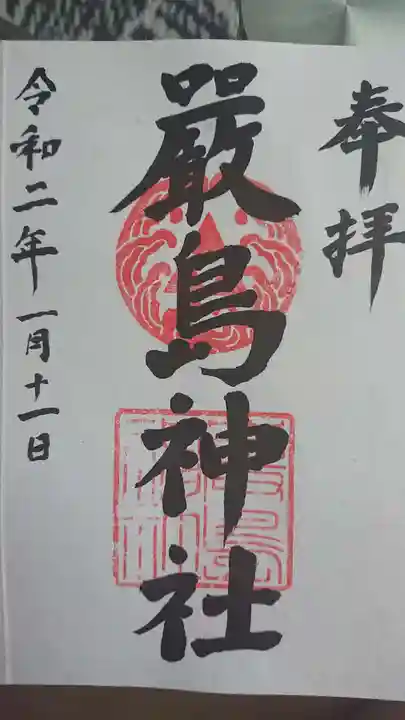 奉拝
嚴島神社
令和二年一月十一日